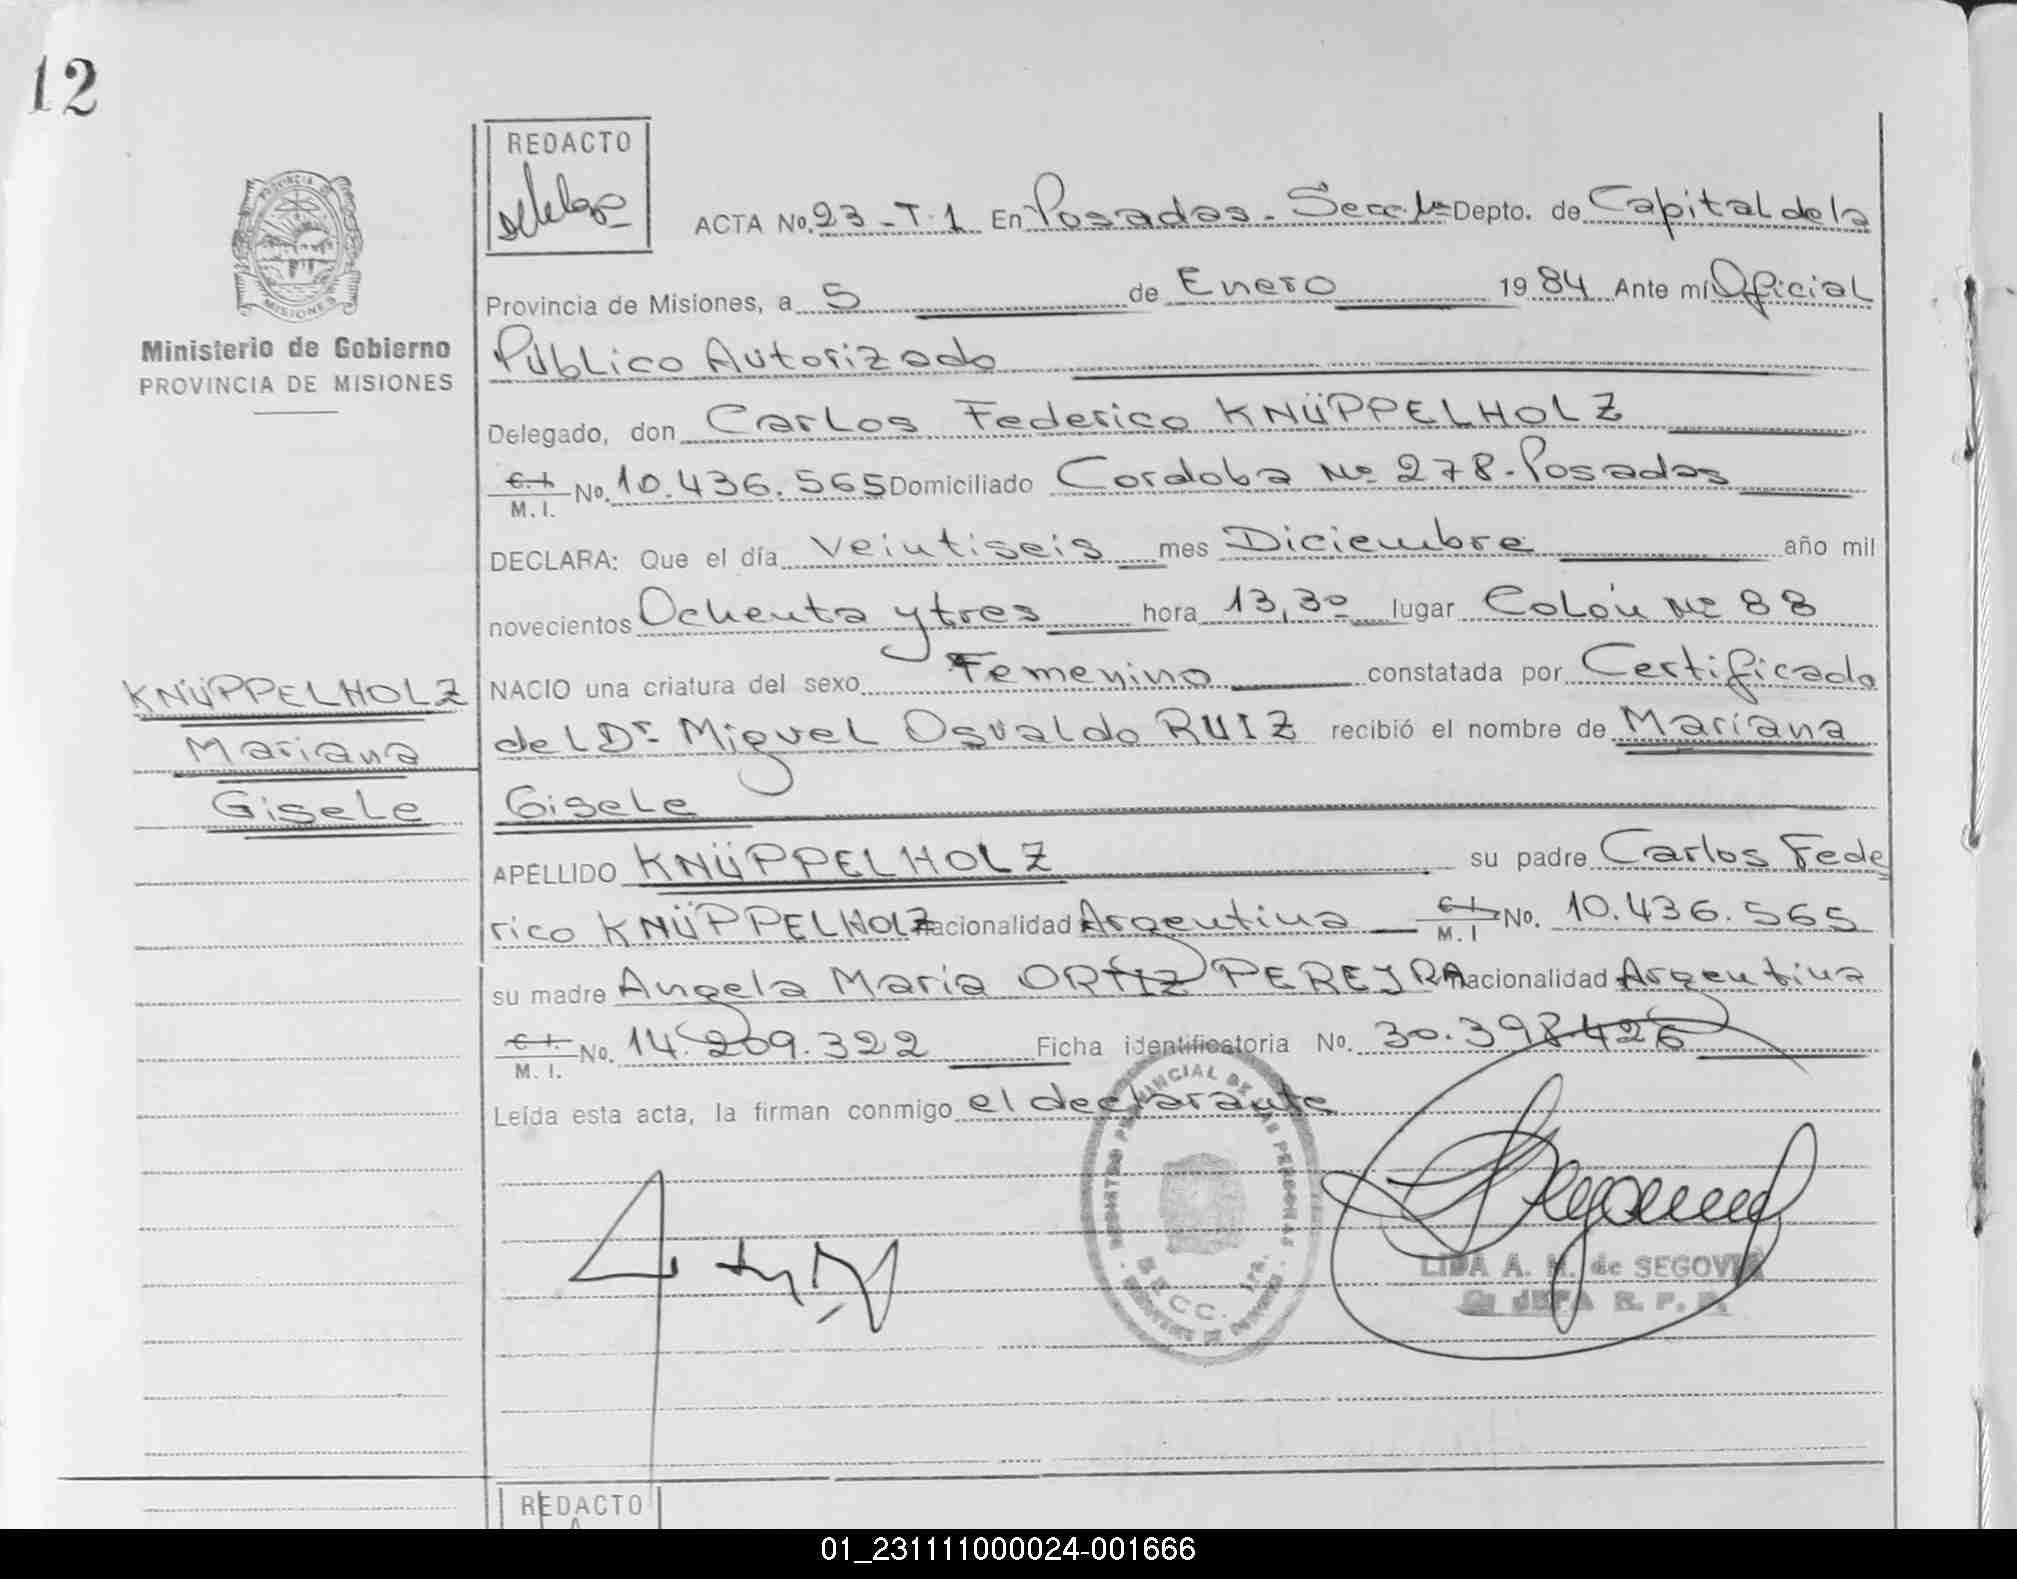 12
REDACTO
PROVINCIA DE
MISIONES
ACTA No. 23-T.1 En Posadas - Secc. 1a Depto. de Capital de la
Provincia de Misiones, a 5 de Enero 1984 Ante mí Oficial
Ministerio de Gobierno
PROVINCIA DE MISIONES
Público Autorizado
Delegado, don Carlos Federico KNÜPPELHOLZ
C. I.
M. I. No. 10.436.565 Domiciliado Cordoba Nº 278 - Posadas
DECLARA: Que el día veintiseis mes Diciembre año mil
novecientos Ochenta y tres hora 13,30 lugar Colón Nº 88
NACIO una criatura del sexo Femenino constatada por Certificado
KNÜPPELHOLZ
Mariana
Gisele
del Dr. Miguel Osvaldo RUIZ recibió el nombre de Mariana
Gisele
APELLIDO KNÜPPELHOLZ su padre Carlos Fede
rico KNÜPPELHOLZ nacionalidad Argentina C. I.
M. I No. 10.436.565
su madre Angela María ORTIZ PEREYRA nacionalidad Argentina
C. I.
M. I. No. 14.209.322 Ficha identificatoria No. 30.398.426
Leída esta acta, la firman conmigo el declarante
REGISTRO PROVINCIAL DE LAS PERSONAS
SECC. 1ra.
LIDA A. M. de SEGOVIA
JEFA R. P. P.
REDACTO
01_231111000024-001666